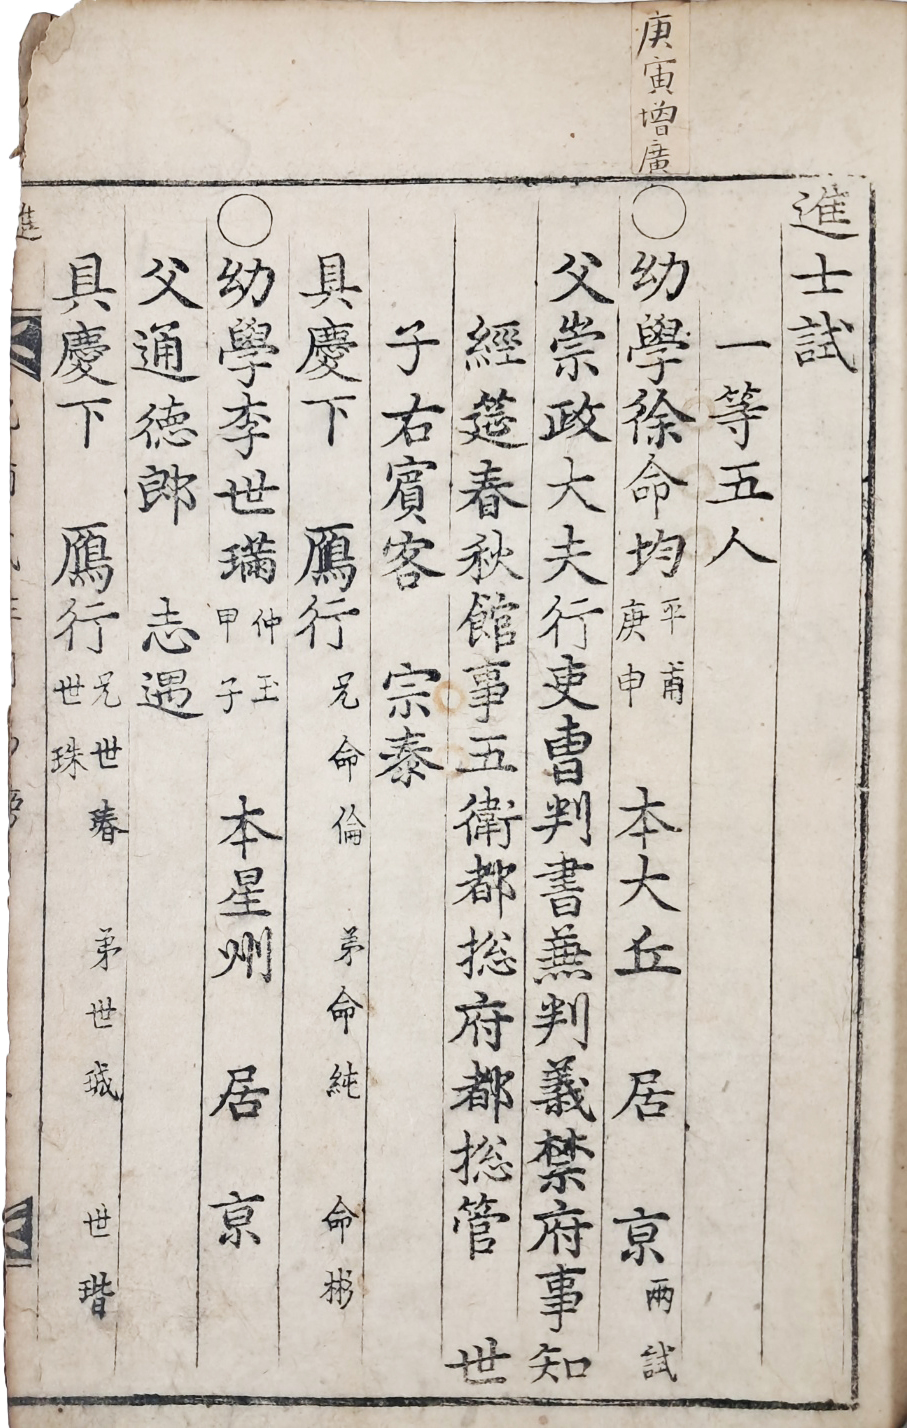 庚寅增廣
進士試
一等五人
○幼學徐命均 平甫 庚申 本大丘 居京 兩試
父崇政大夫行吏曺判書兼判義禁府事知
經筵春秋館事五衛都摠府都摠管 世
子右賓客 宗泰
具慶下 鴈行 兄命倫 弟命純 命彬
○幼學李世璊 仲玉 甲子 本星州 居京
父通德郎 志遇
具慶下 鴈行 兄世瑃 世珠 弟世珹 世瑎
進